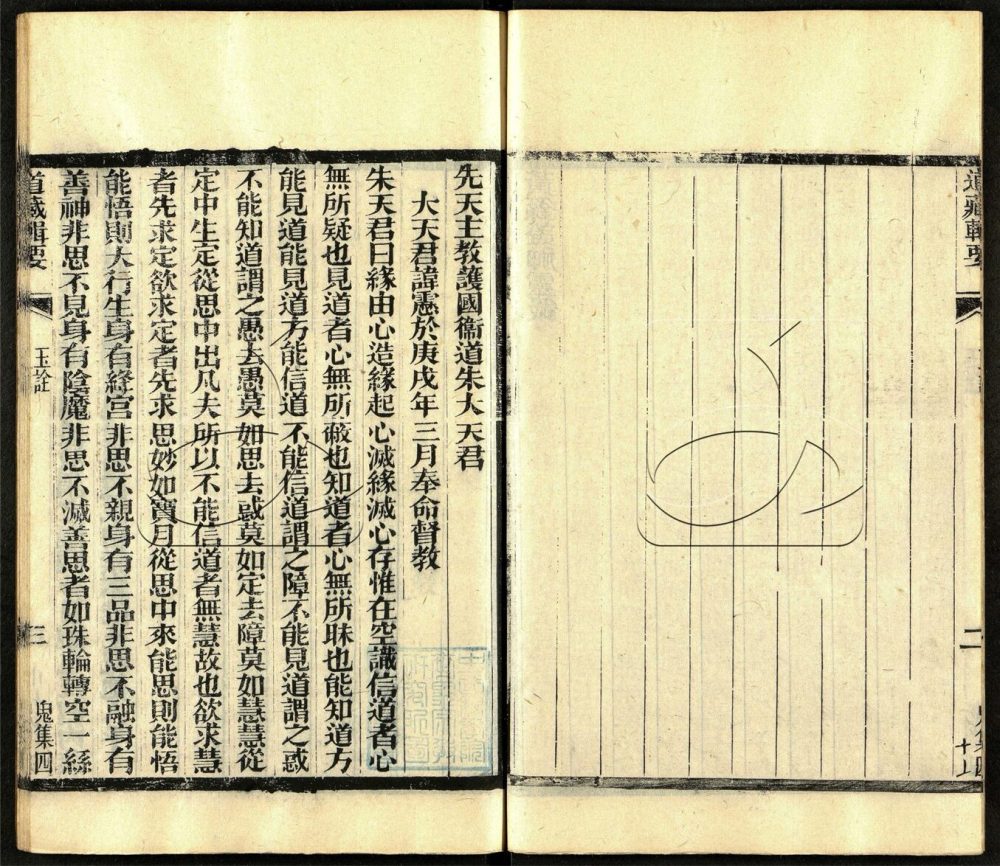 道藏輯要
二
先天主教護國衞道朱大天君
大天君諱憲於庚戌年三月奉命督教
朱天君曰緣由心造緣起心滅緣滅心存惟在空識信道者心
無所疑也見道者心無所蔽也知道者心無所昧也能知道方
能見道能見道方能信道不能信道謂之障不能見道謂之惑
不能知道謂之愚去愚莫如思去惑莫如定去障莫如慧慧從
定中生定從思中出凡夫所以不能信道者無慧故也欲求慧
者先求定欲求定者先求思妙如寶月從思中來能思則能悟
能悟則大行生身有絳宮非思不親身有三品非思不融身有
善神非思不見身有陰魔非思不滅善思者如珠輪轉空一絲
道藏輯要
玉詮
三
鬼集四